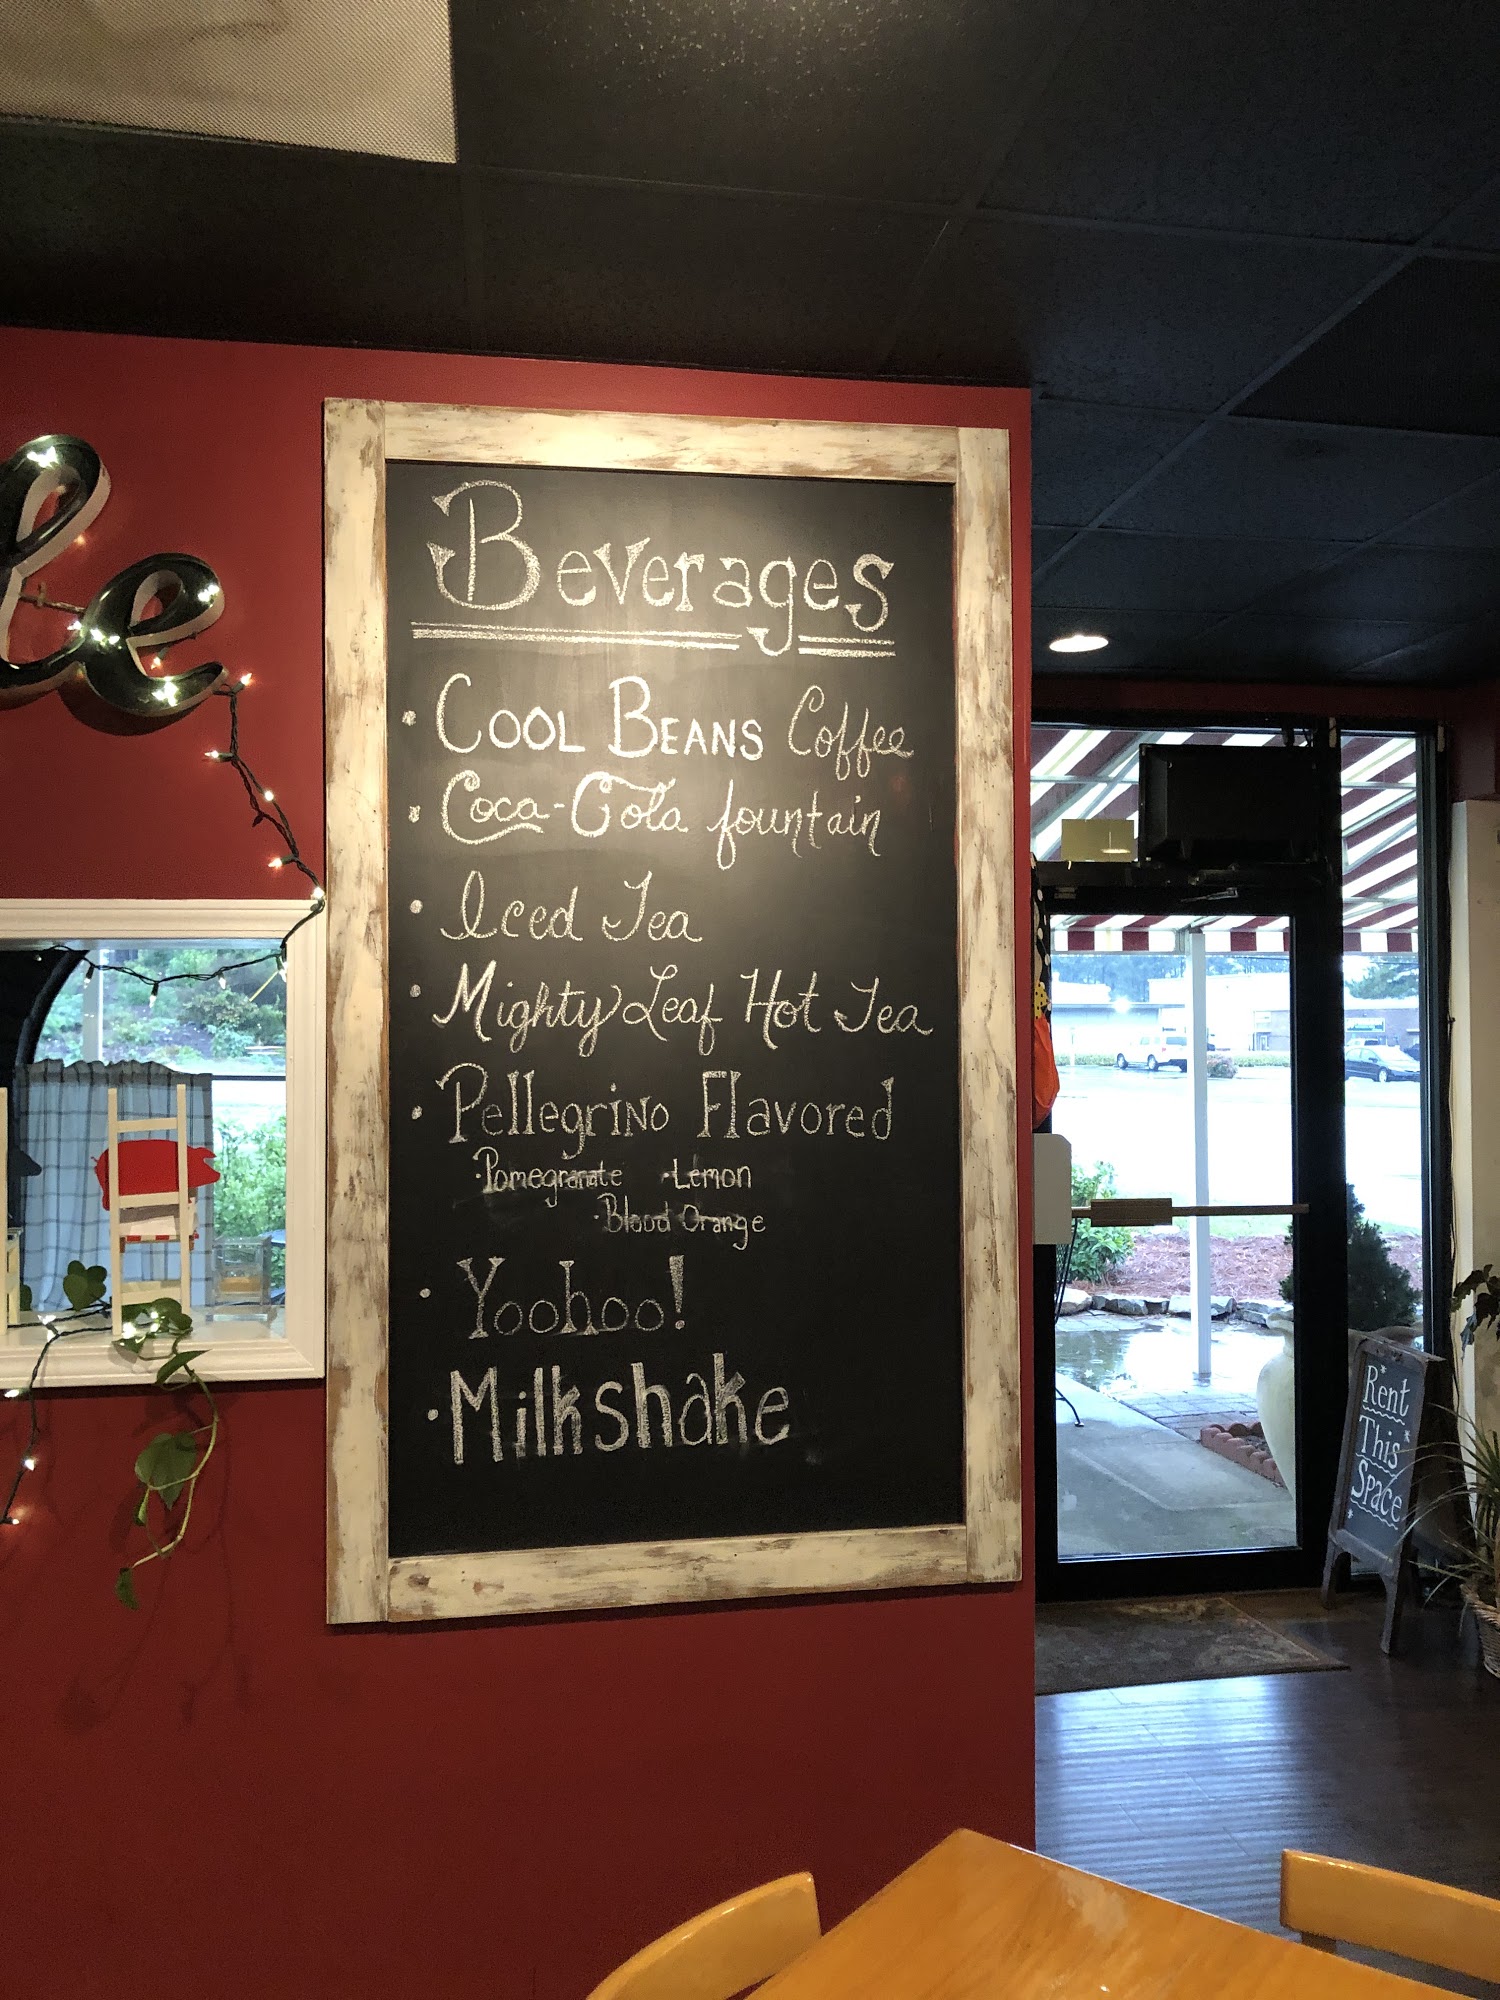 Beverages
• COOL BEANS Coffee
• Coca-Cola fountain
• Iced Tea
• Mighty Leaf Hot Tea
• Pellegrino Flavored
·Pomegranate ·Lemon
·Blood Orange
• Yoohoo!
• Milkshake
le
Rent
This
Space